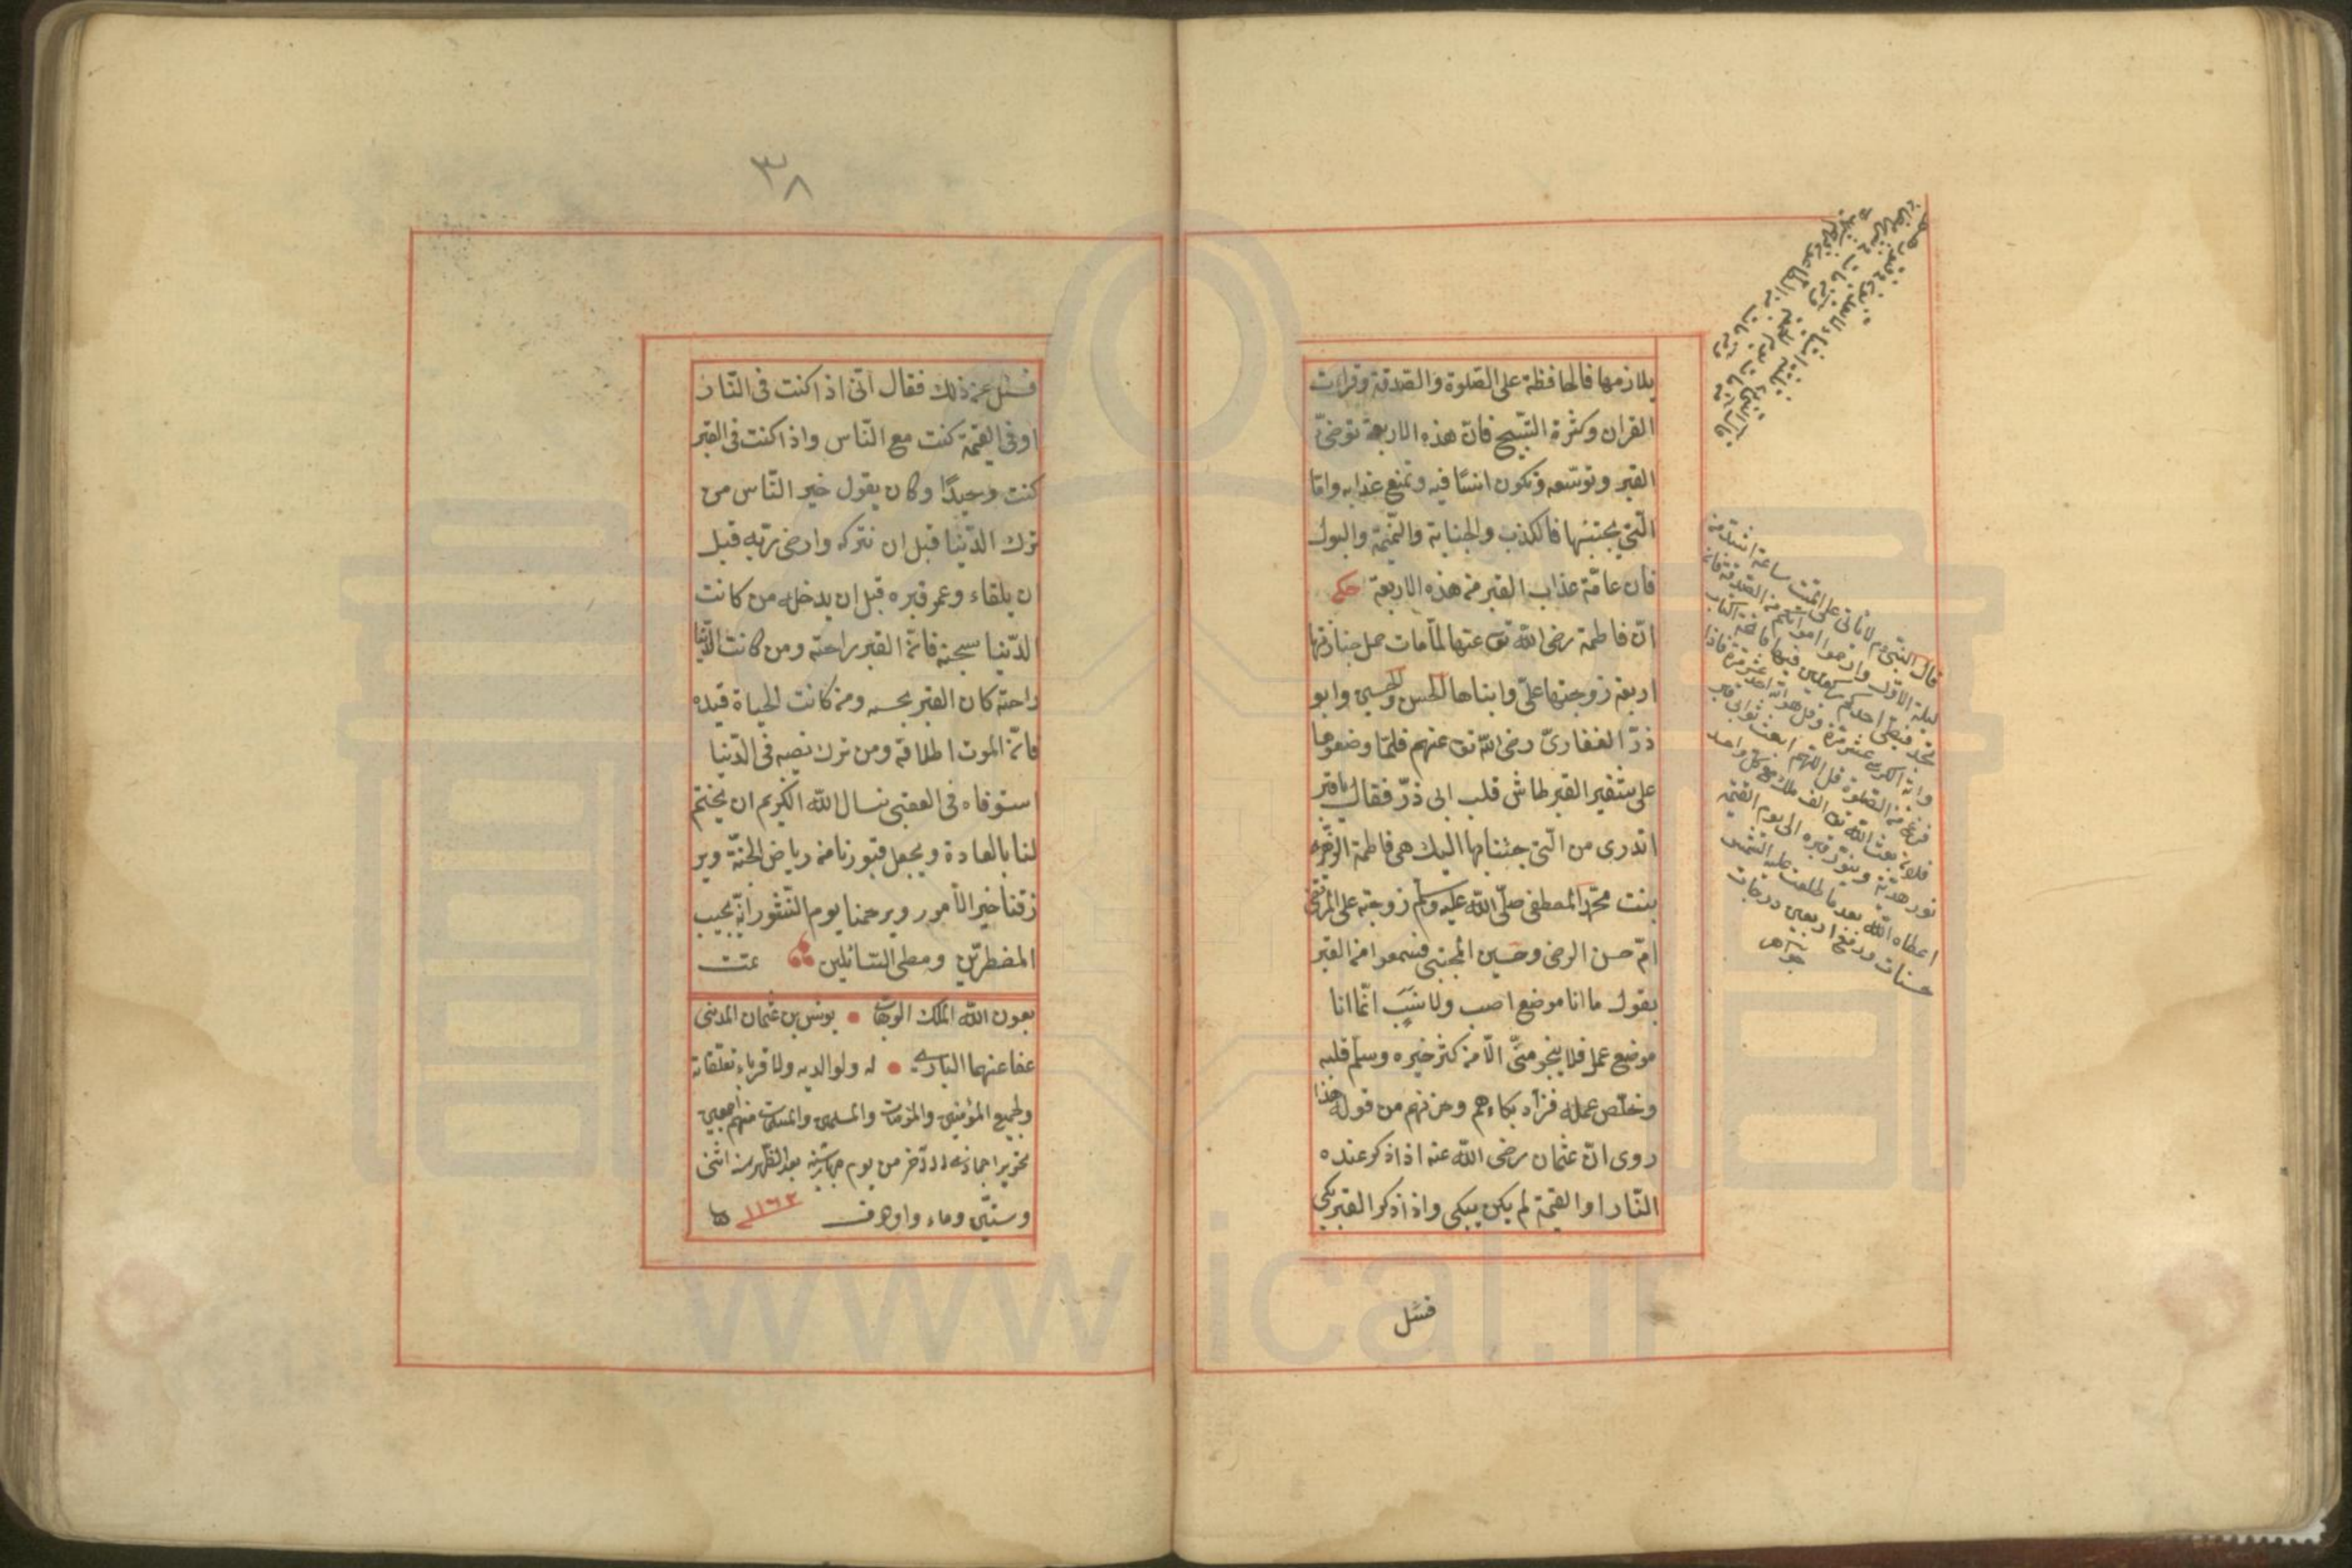 يلازمها فالمحافظة على الصلوة والصدقة وقراءت
القران وكثرة التسبيح فان هذه الاربعة توضئ
القبر وتوسعه وتكون انسا فيه وتمنع عذابه واما
التي يجتنبها فالكذب والجناية والنميمة والبول
فان عامة عذاب القبر من هذه الاربعة حكى
ان فاطمة رضى الله تع عنها لما مات حمل جنازتها
اربعة زوجها على وابناها الحسن والحسين وابو
ذر الغفارى رضى الله تع عنهم فلما وضعوها
على شفير القبر طاش قلب ابى ذر فقال يا قبر
اتدرى من التى جئنا بها اليك هى فاطمة الزهراء
بنت محمد المصطفى صلى الله عليه وسلم زوجة على المرتضى
ام حسن الرضى وحسين المجتبى فسمعوا من القبر
يقول ما انا موضع احسب ولا نسب انما انا
موضع عمل فلا ينجو منى الا من كثر خيره وسلم قلبه
وخلص عمله فزاد بكاءهم وحزنهم من قوله هذا
روى ان عثمان رضى الله عنه اذا ذكر عنده
النار او القيمة لم يكن يبكى واذا ذكر القبر يبكى
فسئل
قال النبى عم لا ياتى على الميت ساعة اشد من
ليلة الاولى وارحموا امواتكم من الصدقة فان لم
يجد فيصلى احدكم ركعتين فيها فاتحة الكتاب
فرغ من الصلوة قل اللهم ابعث ثوابى قبر
فلان بعث الله تع الف ملك مع كل واحد
نور هدية وينور قبره الى يوم القيمة
اعطاه الله بعد ما طلعت عليه الشمس
حسنات ورفع اربعين درجات
جواهر
٣٨
فسئل عن ذلك فقال انى اذا كنت فى النار
او فى القيمة كنت مع الناس واذا كنت فى القبر
كنت وحيدا وكان يقول خير الناس من
ترك الدنيا قبل ان تتركه وارضى ربه قبل
ان يلقاء وعمر قبره قبل ان يدخله من كانت
الدنيا سجنه فان القبر راحته ومن كانت الدنيا
راحته كان القبر بحسه ومن كانت الحياة قيده
فان الموت اطلاقه ومن ترك نصيبه فى الدنيا
استوفاه فى العقبى نسال الله الكريم ان يختم
لنا بالعادة ويجعل قبورنا من رياض الجنة وير
زقنا خير الامور ويرحمنا يوم النشور انه يجيب
المضطرين ومطى السائلين تمت
بعون الله الملك الوهاب يونس بن عثمان المدنى
عفا عنهما البارى له ولوالديه ولاقرباء تعلقاته
ولجميع المؤمنين والمؤمنات والمسلمين والمسلمات منهم اجمعين
من يوم بعد الظهر سنه اثنى
وستين وماء والف ١١٦٢